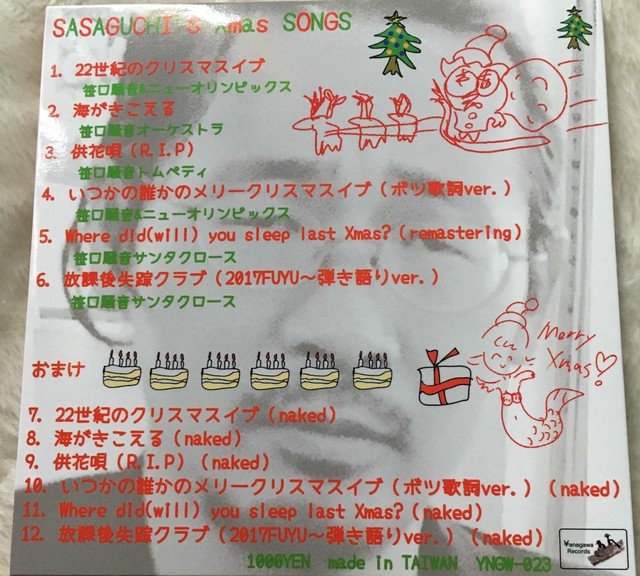 SASAGUCHI'S Xmas SONGS
1. 22世紀のクリスマスイブ
笹口騒音&ニューオリンピックス
2. 海がきこえる
笹口騒音オーケストラ
3. 供花唄（R.I.P）
笹口騒音トムペティ
4. いつかの誰かのメリークリスマスイブ（ボツ歌詞ver.）
笹口騒音&ニューオリンピックス
5. Where did(will) you sleep last Xmas?（remastering）
笹口騒音サンタクロース
6. 放課後失踪クラブ（2017FUYU～弾き語りver.）
笹口騒音サンタクロース
Merry
Xmas!
おまけ
7. 22世紀のクリスマスイブ（naked）
8. 海がきこえる（naked）
9. 供花唄（R.I.P）（naked）
10. いつかの誰かのメリークリスマスイブ（ボツ歌詞ver.）（naked）
11. Where did(will) you sleep last Xmas?（naked）
12. 放課後失踪クラブ（2017FUYU～弾き語りver.）（naked）
1000YEN made in TAIWAN YNGW-023
Yanagawa
Records